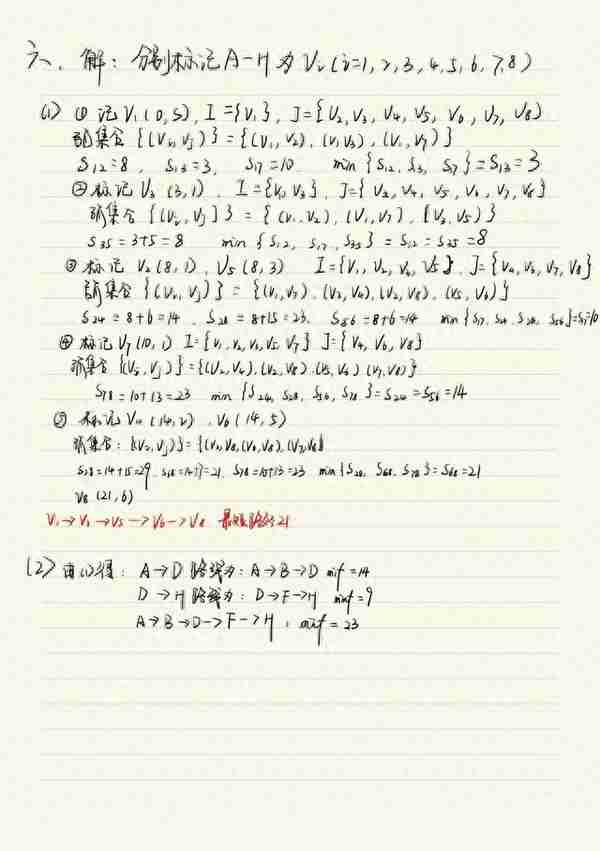 六、解：分别标记A-H为Vi(i=1,2,3,4,5,6,7,8)
(1) ① 记V1(0,S), I={V1}, J={V2,V3,V4,V5,V6,V7,V8}
弧集合{(Vi,Vj)}={(V1,V2),(V1,V3),(V1,V7)}
S12=8, S13=3, S17=10 min{S12,S13,S17}=S13=3
②标记V3(3,1), I={V1,V3}, J={V2,V4,V5,V6,V7,V8}
弧集合{(Vi,Vj)}={(V1,V2),(V1,V7),(V3,V5)}
S35=3+5=8 min{S12,S17,S35}=S12=S35=8
③标记V2(8,1),V5(8,3) I={V1,V2,V3,V5}, J={V4,V6,V7,V8}
弧集合{(Vi,Vj)}={(V1,V7),(V2,V4),(V2,V8),(V5,V6)}
S24=8+6=14, S28=8+15=23, S56=8+6=14 min{S17,S24,S28,S56}=S17=10
④标记V7(10,1) I={V1,V2,V3,V5,V7} J={V4,V6,V8}
弧集合{(Vi,Vj)}={(V2,V4),(V2,V8),(V5,V6),(V7,V8)}
S78=10+13=23 min{S24,S28,S56,S78}=S24=S56=14
⑤标记V4(14,2),V6(14,5)
弧集合:{(Vi,Vj)}={(V2,V8),(V6,V8),(V7,V8)}
S28=14+15=29, S68=14+7=21, S78=10+13=23 min{S28,S68,S78}=S68=21
V8(21,6)
V1→V3→V5→V6→V8 最短路径21
(2) 由(1)得: A→D路线为:A→B→D minf=14
D→H路线为:D→F→H minf=9
A→B→D→F→H, minf=23